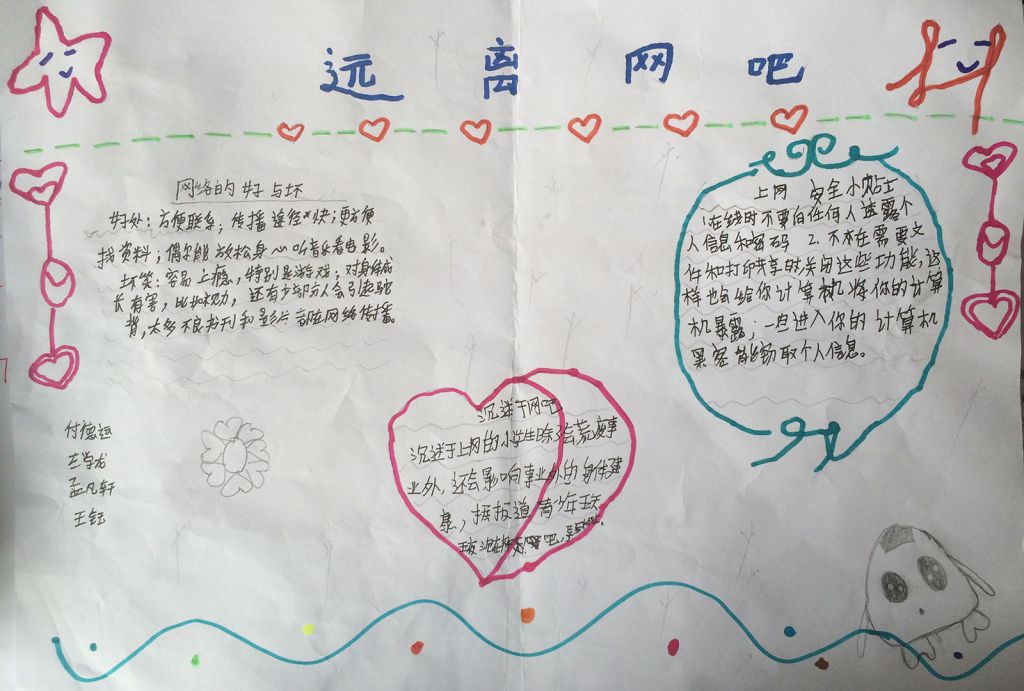 远离网吧
网络的好与坏
好处:方便联系;传播途径快;更方便
找资料;偶尔能放松身心听音乐看电影。
坏笑:容易上瘾,特别是游戏;对身体成
长有害,比如视力,还有少部分人会引起驼
背,太多不良书刊和影片都在网络传播。
上网 安全小贴士
1.在线时不要向任何人透露个
人信息和密码 2.不在需要文
件和打印共享时关闭这些功能,这
样也会给你计算机将你的计算
机暴露;一旦进入你的计算机
黑客能窃取个人信息。
沉迷于网吧
沉迷于上网的小学生除了会荒废事
业外,还会影响事业外的身体健
康,据报道青少年天天
沉在网吧,
付德运
兰学龙
孟凡轩
王钰